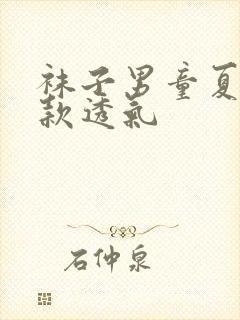 袜子男童夏
款透氣
石仲泉